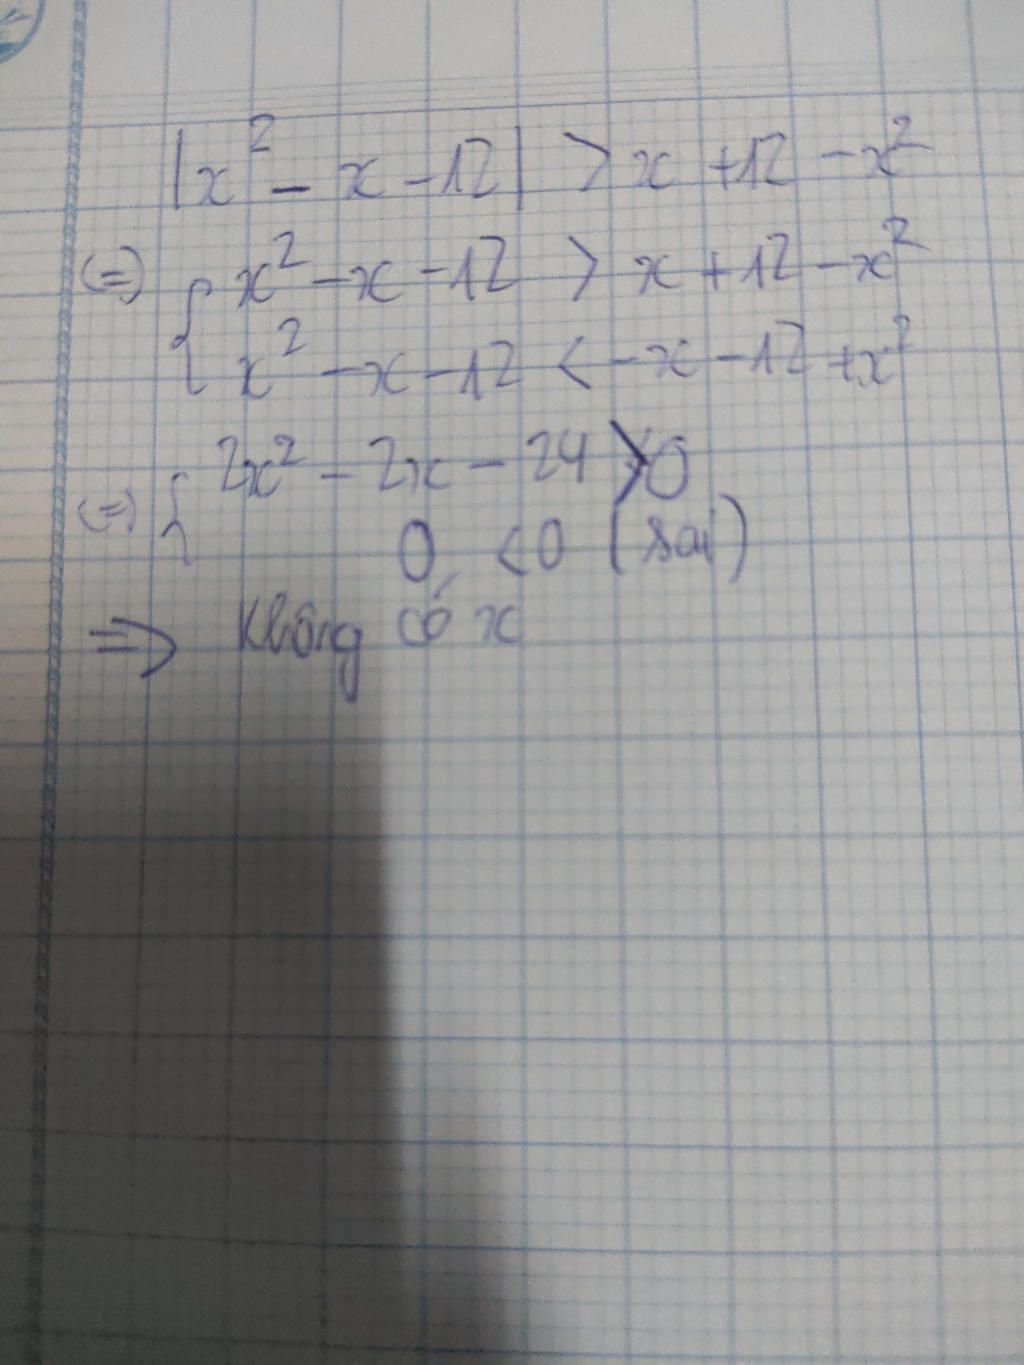 |x² - x - 12| > x + 12 - x²
(=) { x² - x - 12 > x + 12 - x²
x² - x - 12 < -x - 12 + x²
(=) { 2x² - 2x - 24 > 0
0 < 0 (sai)
=> Không có x